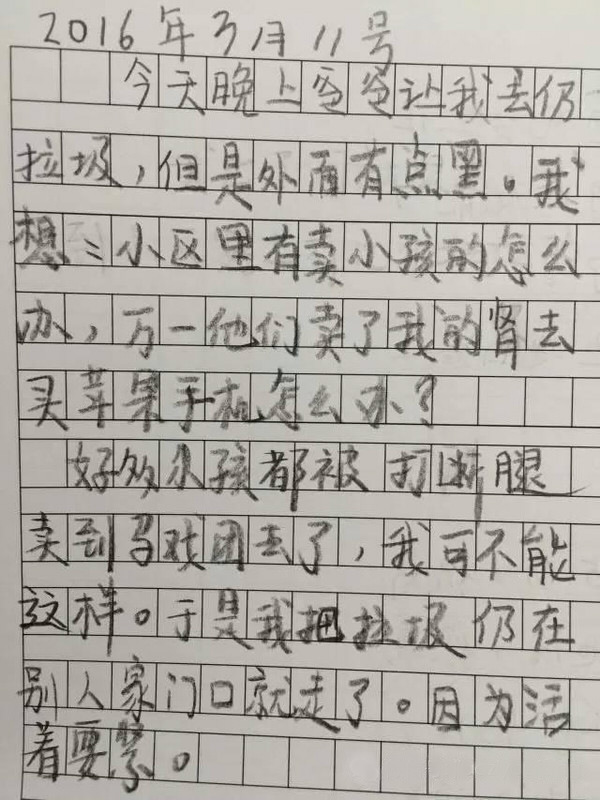 2016年3月11号
今天晚上爸爸让我去仍
垃圾，但是外面有点黑。我
想：小区里有卖小孩的怎么
办，万一他们卖了我的肾去
买苹果手机怎么办？
好多小孩都被打断腿
卖到马戏团去了，我可不能
这样。于是我把垃圾仍在
别人家门口就走了。因为活
着要紧。